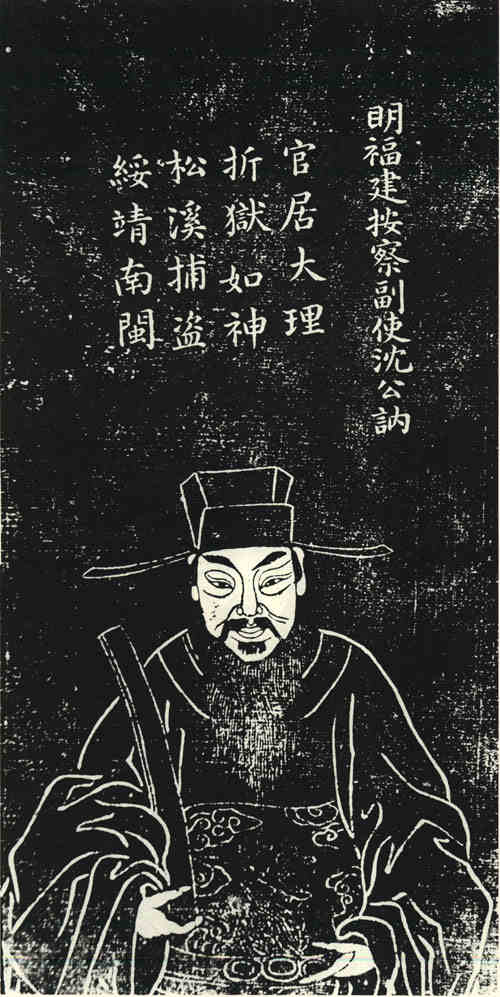 明福建按察副使沈公訥
官居大理
折獄如神
松溪捕盗
綏靖南閩